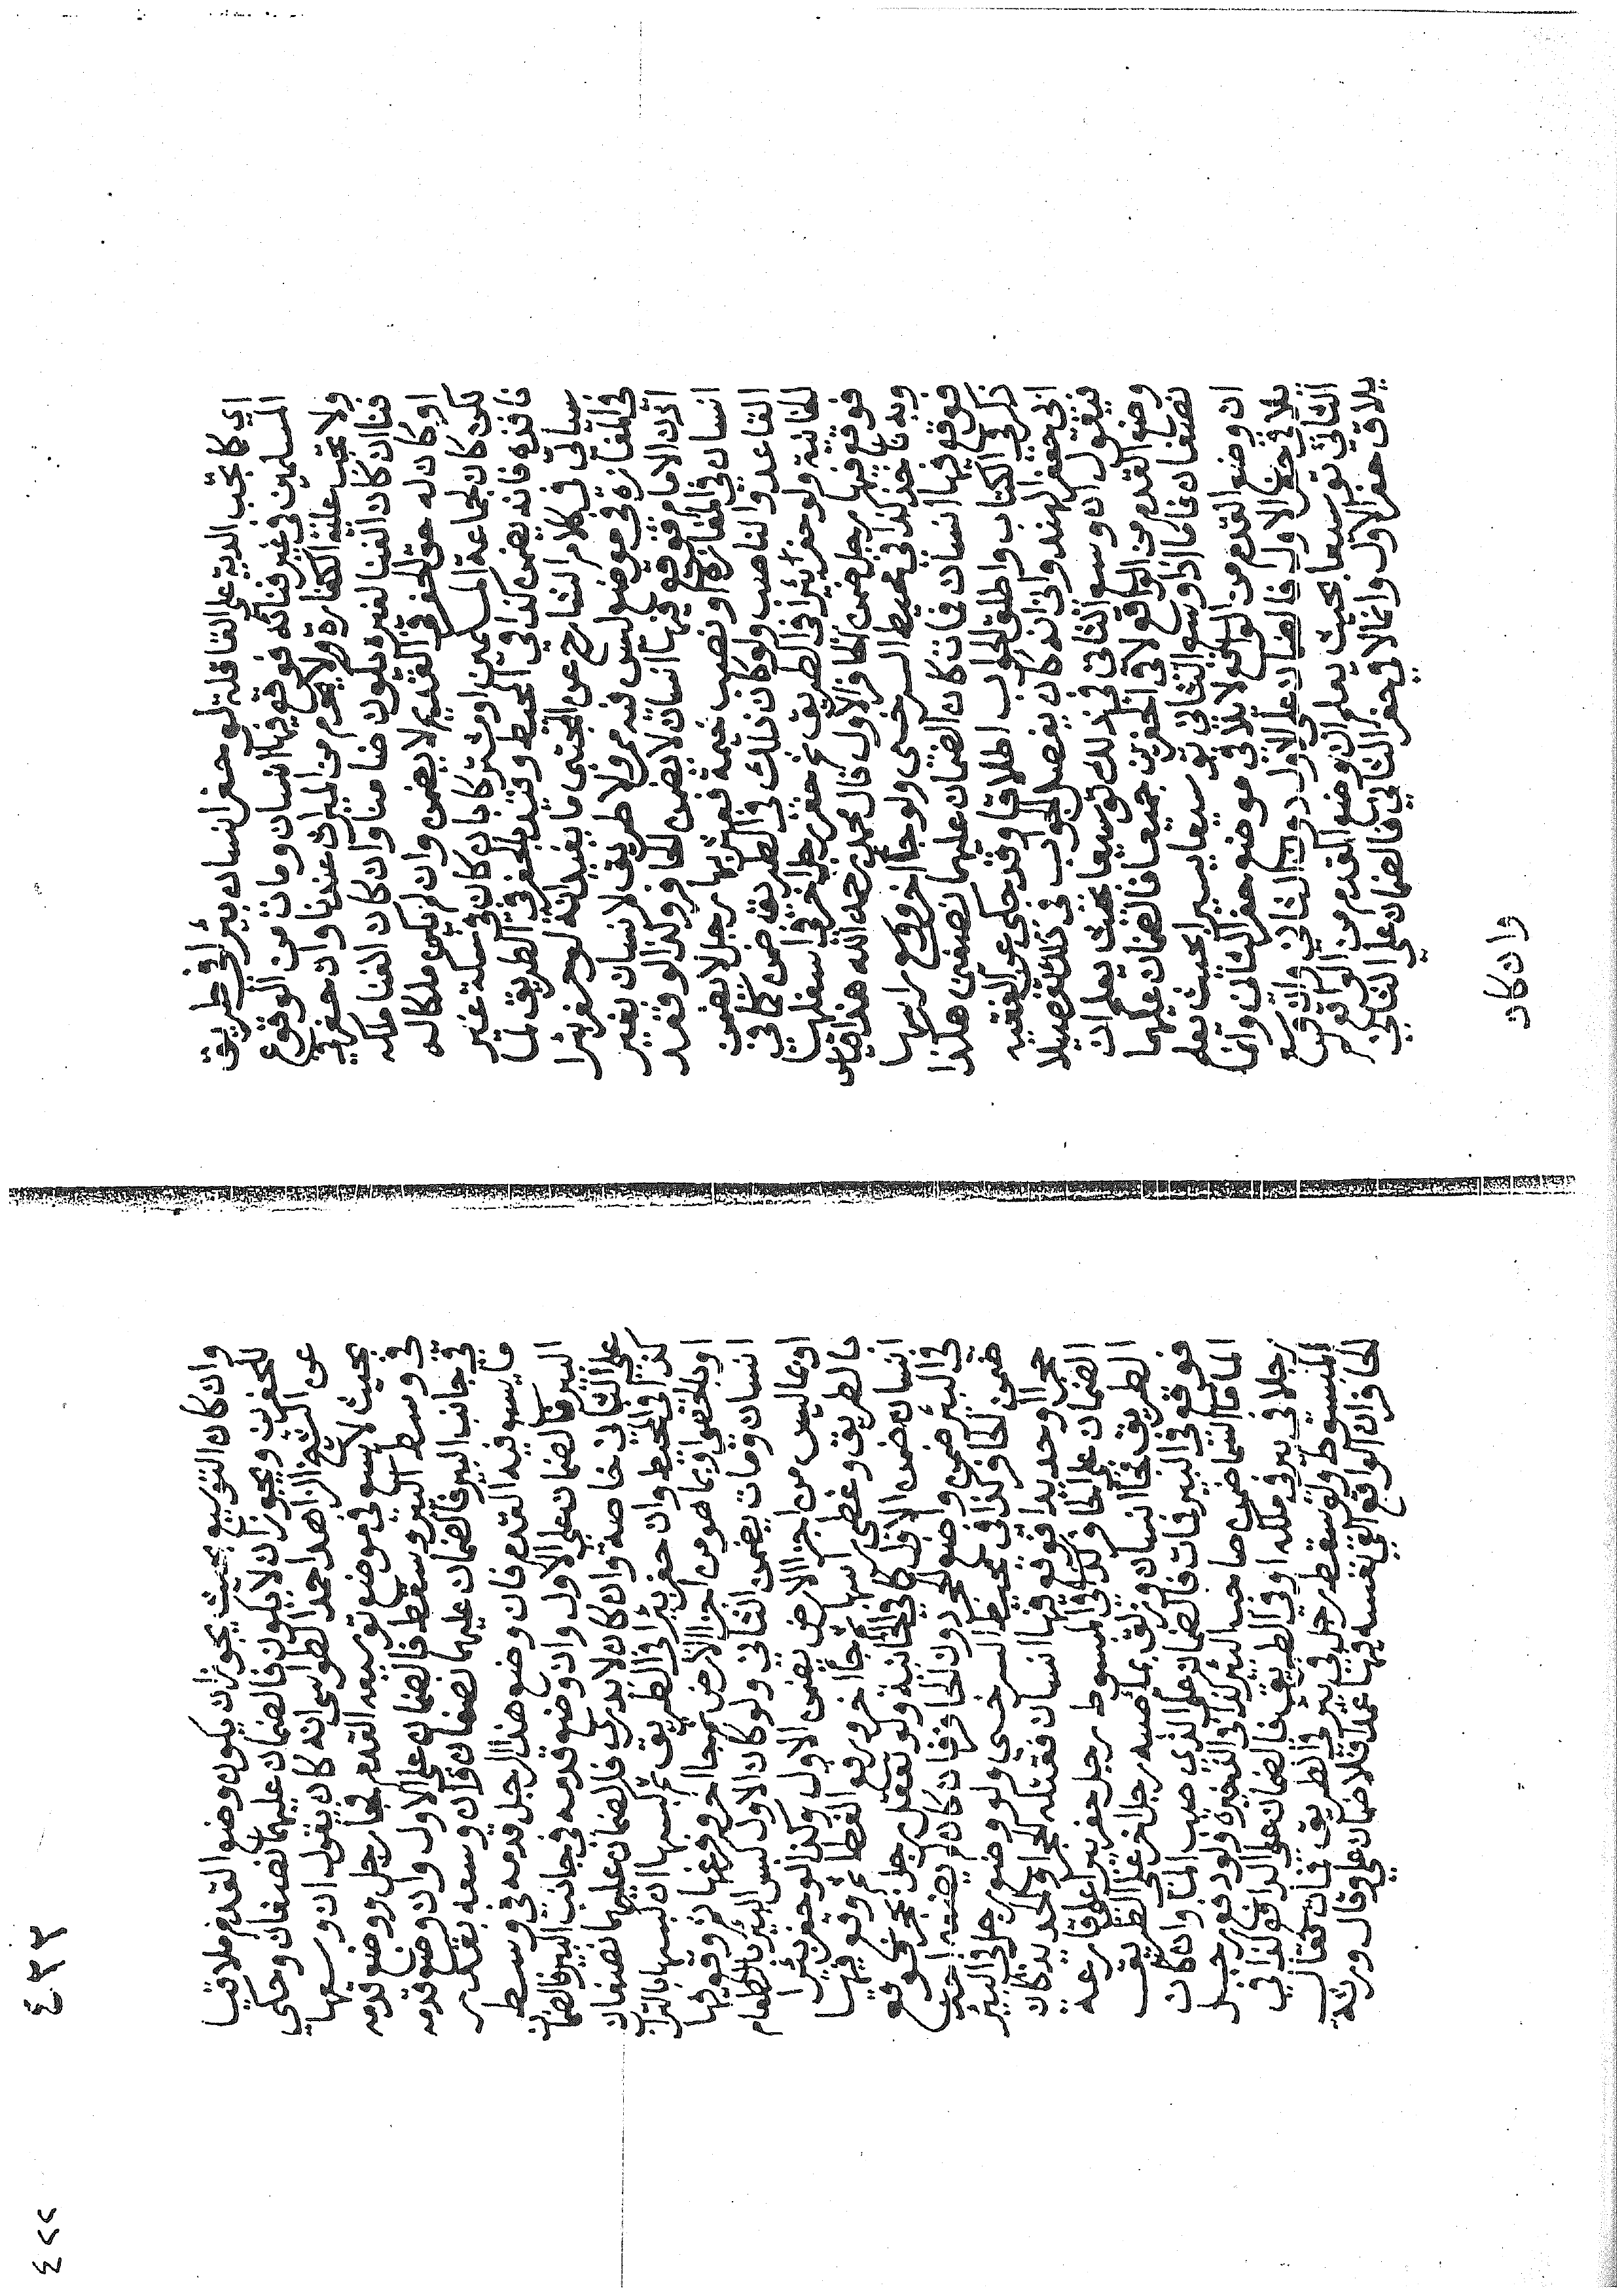 اي كما تجب الدية على العاقلة لو حفر انسان بيرا في طريق
المسلمين في غير فنائه فوقع فيها انسان ومات من الوقوع
ولا تجب عليه الكفارة ولا يحرم من الميراث عندنا وان حفر في
فناء ان كان الفنا لغيره يكون ضامنا وان كان الفنا ملكه
او كان له حق الحفر في القديم لا يضمن وان لم يكن ملكا له
لكن كان لجماعة المسلمين او مشتركا بان كان في سكة غير
نافذة فانه يضمن كذا في المحيط وقيد بالحفر في الطريق لما
سياتي في كلام الشارح عن المجتبى ما يفيد انه لو حفر بئرا
في المفازة في موضع ليس فيه ممر ولا طريق لانسان بغير
اذن الامام فوقع فيها انسان لا يضمن الحافر وكذا لو قعد
انسان في المفازة او نصب خيمة فعثر بها رجل لا يضمن
القاعد والناصب ولو كان ذلك في الطريق ضمن كما في
الخانية ولو حفر بئرا في الطريق ثم حفر رجل اخر في اسفلها
فوقع فيها رجل ضمن الحافر الاول قال محمد رحمه الله هذا قياس
وبه ناخذ كذا في محيط السرخسي ولو جا اخر ووسع راسها
فوقع فيها انسان فمات كان الضمان عليهما نصفين هكذا
ذكر في الكتاب واطلق الجواب اطلاقا وقد حكى عن الفقيه
ابي جعفر الهندواني انه كان يفصل الجواب في ذلك تفصيلا
فيقول ان وسع الثاني في ذلك توسيعا بحيث يعلم ان
وضع القدم من الواقع لاقى الحفرين جميعا فالضمان عليهما
نصفان فاما اذا وسع الثاني توسيعا يسيرا بحيث يعلم
ان وضع القدم من الواقع لا يلاقي موضع حفر الثاني وانما
يلاقي حفر الاول فالضمان على الاول دون الثاني وان وسع
الثاني توسيعا بحيث يعلم ان وضع القدم من الواقع لم
يلاق حفر الاول وانما لاقى حفر الثاني فالضمان على الثاني
وان كان
وان كان التوسيع بحيث يجوز ان يكون وضع القدم ملاقيا
للحفرين ويجوز ان لا يكون فالضمان عليهما نصفان وحكي
عن الشيخ الزاهد احمد الطواسي انه كان يقول ان وسعها
بحيث لا يسع في موضع توسيعه القدم فجا رجل ووضع قدمه
في وسط البير وسقط فالضمان على الاول وان وضع قدمه
في جانب البير فالضمان عليهما نصفان وان وسعه بقدر
ما يسع فيه القدم فان وضع هذا الرجل قدمه في وسط
البير فالضمان على الاول وان وضع قدمه في جانب البير فالضمان
على الثاني خاصة وان كان لا يدرى فالضمان عليهما نصفان
كذا في المحيط وان حفر بيرا في الطريق ثم كبسها ان كبسها بالتراب
او بالحصى او بما هو من اجزا الارض ثم جا اخر وفرغها ثم وقع فيها
انسان ومات يضمن الثاني ولو كان الاول كبس البير بالطعام
او بما ليس من اجزا الارض يضمن الاول وكذا لو حفر بئرا
بالطريق وغطى راسها ثم جا اخر ورفع الغطا ثم وقع فيها
انسان ضمن الاول كما في الخانية ولو تعقل رجل بحجر فوقع
في البير ضمن واضع الحجر دون الحافر فان كان لم يضعه احد
ضمن الحافر كذا في محيط السرخسي ولو وضع رجل في البير
حجرا او حديدا فوقع فيها انسان فقتله الحجر او الحديد كان
الضمان على الحافر كذا في المبسوط رجل حفر بيرا على قارعة
الطريق فجا انسان وزلق بما صبه رجل اخر على الطريق
فوقع في البير فمات فالضمان على الذي صب الما وان كان
الما ما السما ضمن صاحب البير كذا في الذخيرة ولو دفع رجل
رجلا في بير في ملكه او في الطريق فالضمان على الدافع كذا في
المبسوط ولو سقط رجل في بير في الطريق فمات فقال
الحافر ان الواقع القى نفسه فيها عمدا فلا ضمان علي وقال ورثة
٤٣٣
٤٢٢